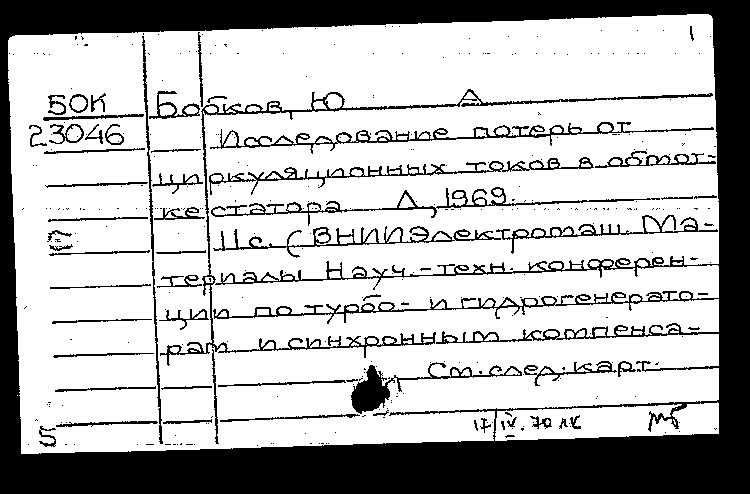 1
БОК Бобков, Ю А
23046 Исследование потерь от
циркуляционных токов в обмот-
ке статора Л, 1969.
11 с. (ВНИИЭлектромаш. Ма-
териалы Науч.-техн. конферен-
ции по турбо- и гидрогенерато-
рам и синхронным компенса-
См. след. карт.
17/IV. 70 лк